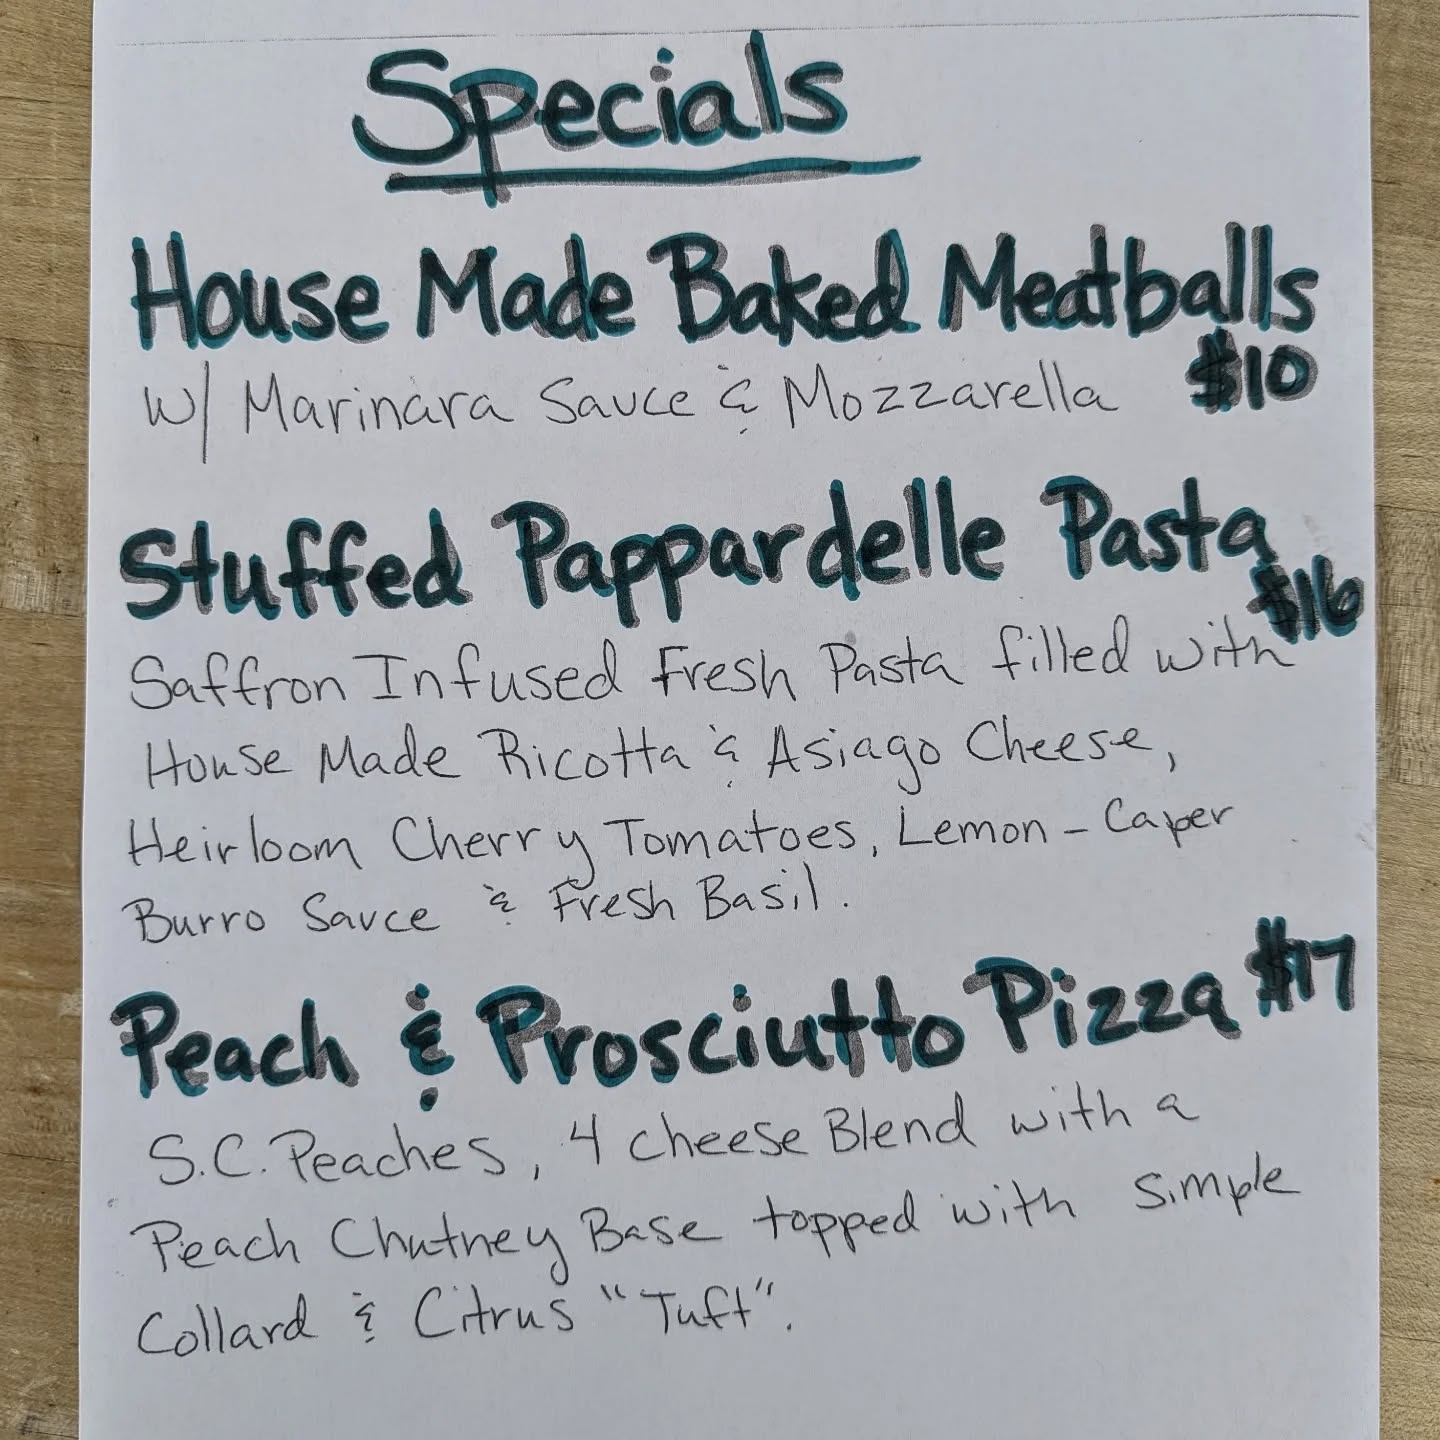 Specials
House Made Baked Meatballs
w/ Marinara Sauce & Mozzarella $10
Stuffed Pappardelle Pasta
$16
Saffron Infused Fresh Pasta filled with
House Made Ricotta & Asiago Cheese,
Heirloom Cherry Tomatoes, Lemon-Caper
Burro Sauce & Fresh Basil.
Peach & Prosciutto Pizza $17
S.C. Peaches, 4 cheese Blend with a
Peach Chutney Base topped with simple
Collard & Citrus "Tuft".